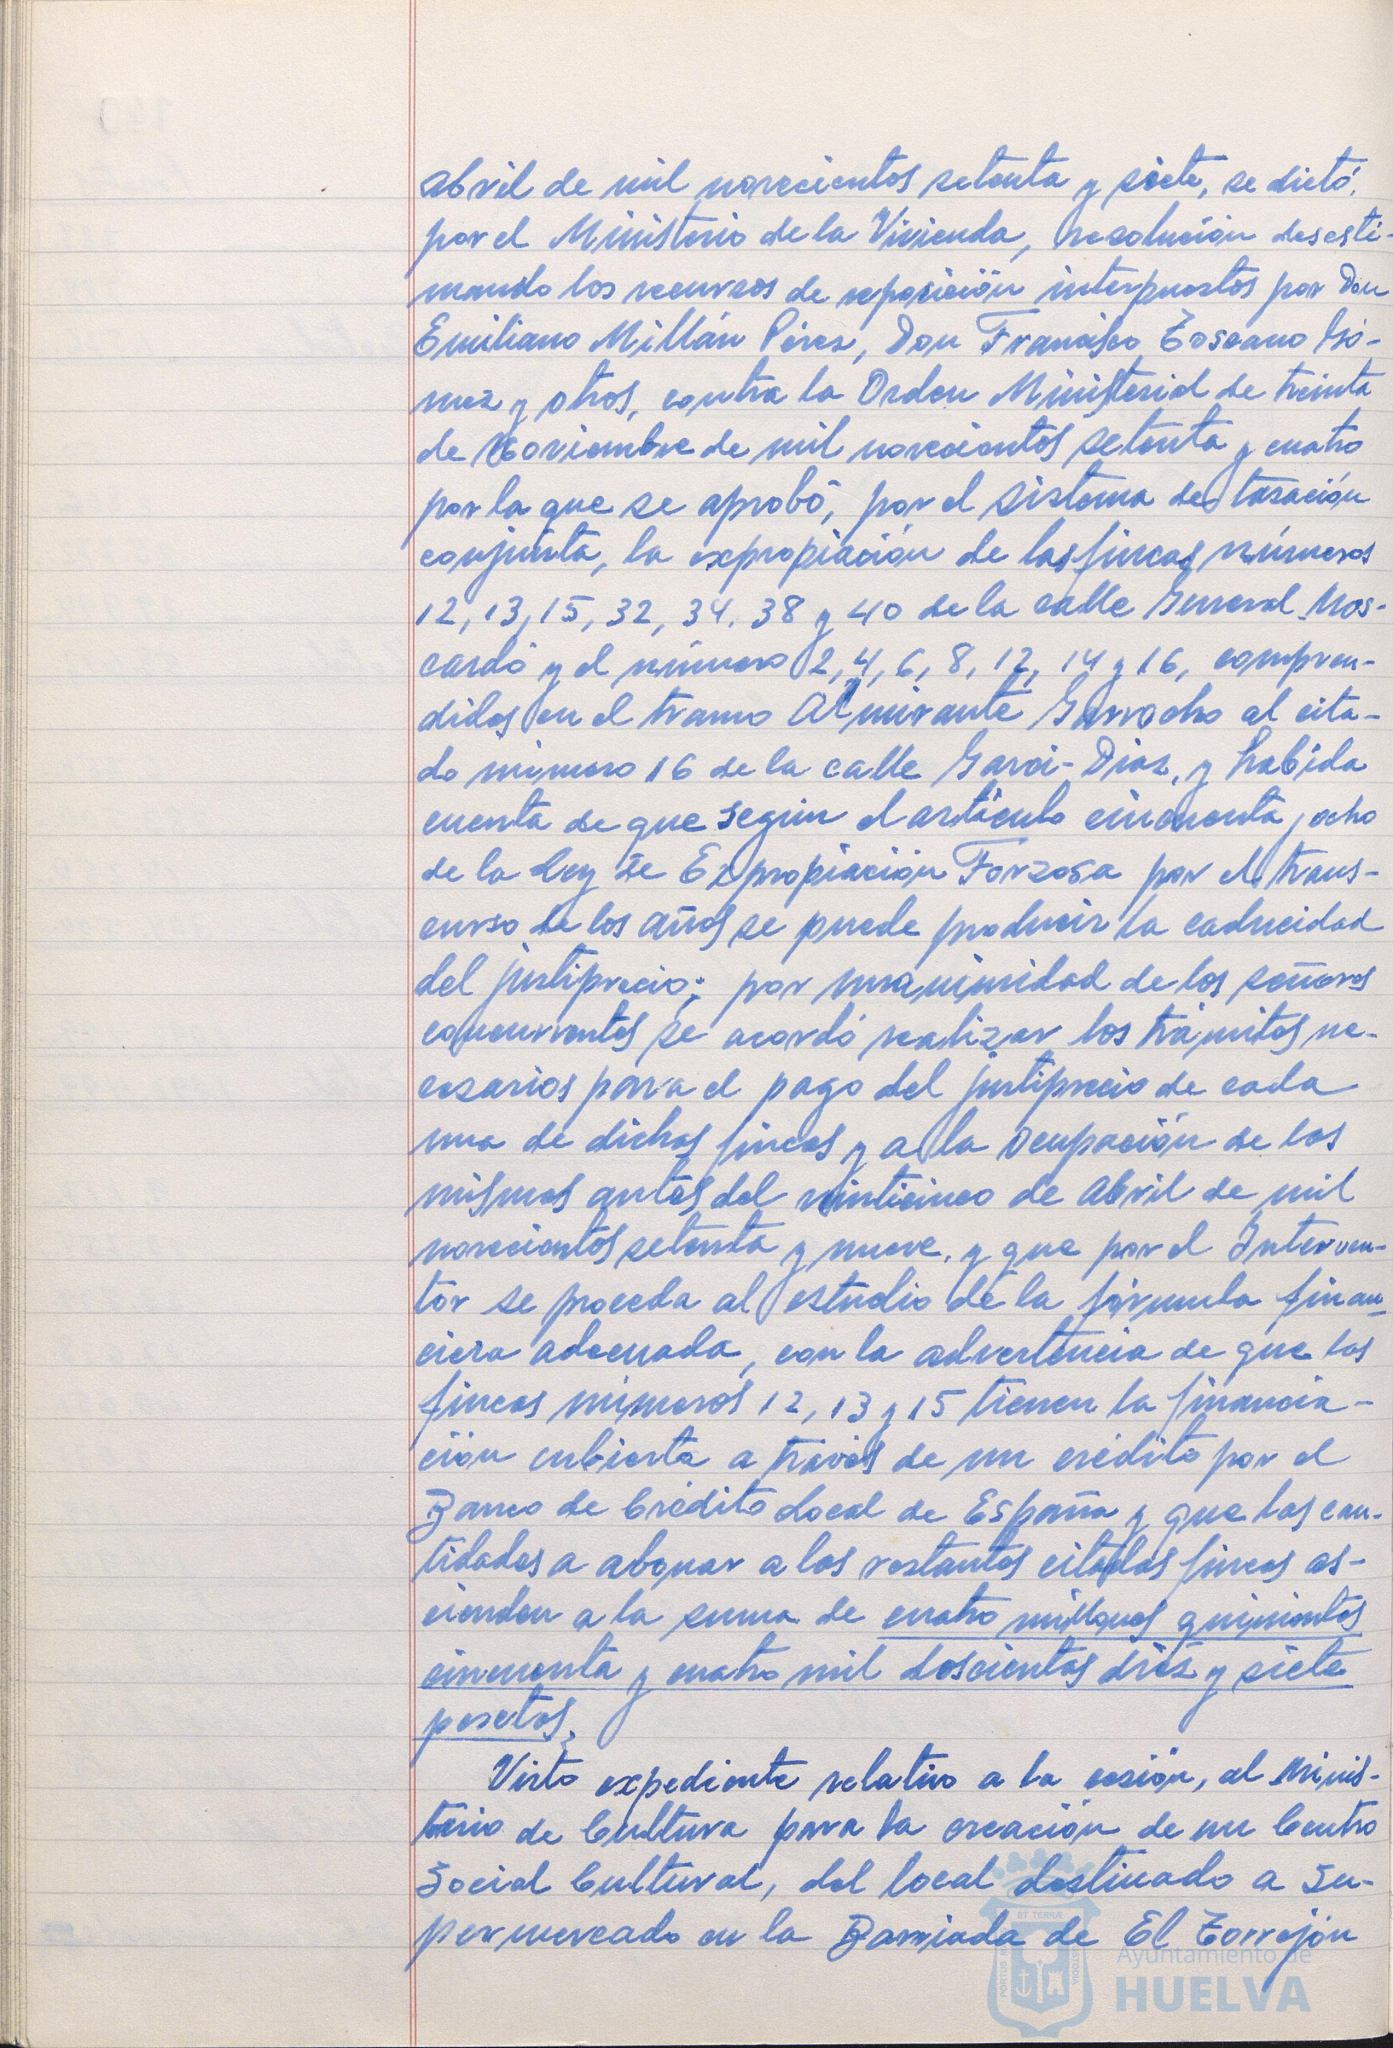 abril de mil novecientos setenta y siete, se dictó,
por el Ministerio de la Vivienda, resolución desesti-
mando los recursos de reposición interpuestos por Don
Emiliano Millán Pérez, Don Francisco Toscano Gó-
mez y otros, contra la Orden Ministerial de treinta
de Noviembre de mil novecientos setenta y cuatro
por la que se aprobó, por el sistema de tasación
conjunta, la expropiación de las fincas números
12, 13, 15, 32, 34, 38 y 40 de la calle General Mos-
cardó y el número 2, 4, 6, 8, 12, 14 y 16, compren-
didos en el tramo Almirante Garrocho al cita-
do número 16 de la calle Garci-Díaz, y habida
cuenta de que según el artículo cincuenta y ocho
de la Ley de Expropiación Forzosa por el trans-
curso de los años se puede producir la caducidad
del justiprecio; por unanimidad de los señores
concurrentes se acordó realizar los trámites ne-
cesarios para el pago del justiprecio de cada
una de dichas fincas y a la ocupación de las
mismas antes del veinticinco de abril de mil
novecientos setenta y nueve, y que por el Interven-
tor se proceda al estudio de la fórmula finan-
ciera adecuada, con la advertencia de que las
fincas números 12, 13 y 15 tienen la financia-
ción cubierta a través de un crédito por el
Banco de Crédito Local de España y que las can-
tidades a abonar a las restantes citadas fincas as-
cienden a la suma de cuatro millones quinientas
cincuenta y cuatro mil doscientas diez y siete
pesetas.
Visto expediente relativo a la cesión, al Minis-
terio de Cultura para la creación de un Centro
Social Cultural, del local destinado a Su-
permercado en la Barriada de El Torrejón
PORTUS MARIS ET TERRAE CUSTODIA
Ayuntamiento de
HUELVA